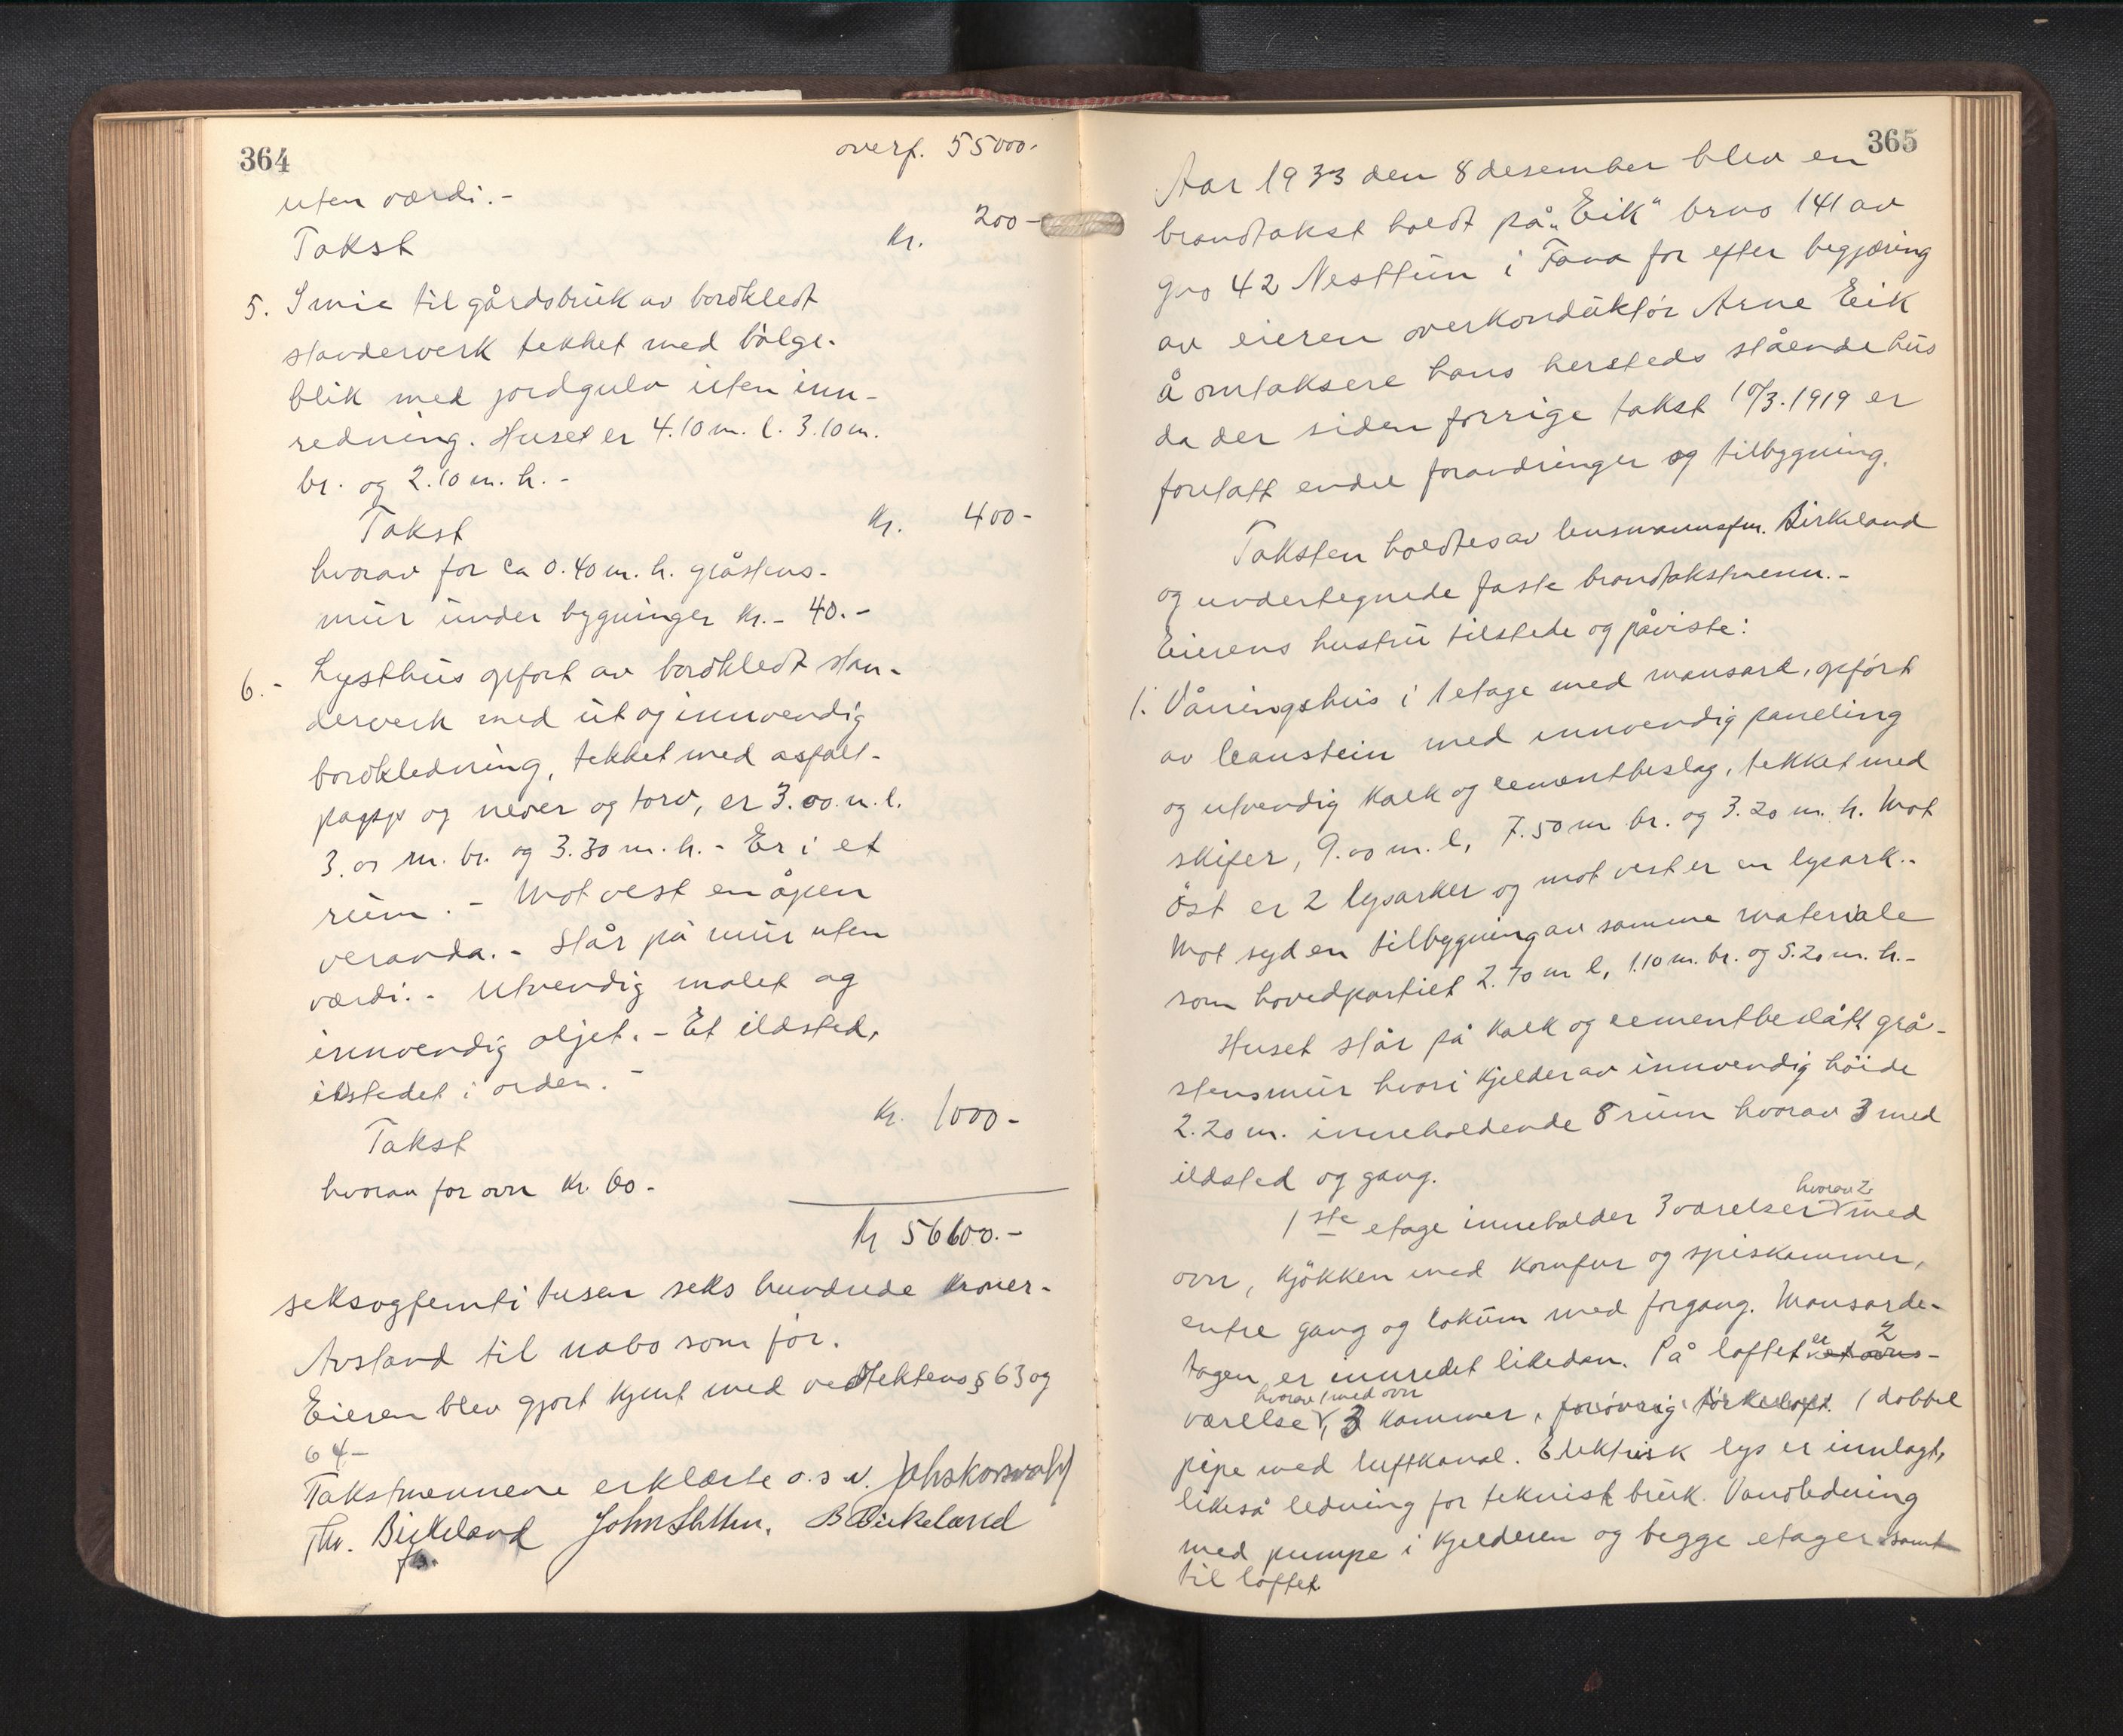 364
overf. 55000.-
uten værdi.-
Takst Kr. 200-
5. Smie til gårdsbruk av bordkledt
standerverk tekket med bölge-
blik med jordgulv uten inn-
redning. Huset er 4.10 m. l. 3.10 m.
br. og 2.10 m. h. -
Takst Kr. 400-
hvorav for ca 0.40 m. h. gråstens-
mur under bygninger Kr. - 40.-
6.- Lysthus opfört av bordkledt stan-
derverk med ut og innvendig
bordkledning, tekket med asfalt-
papp og never og torv, er 3.00 m. l.
3.00 m. br. og 3.30 m. h. - Er i et
rum. - Mot vest en åpen
veranda. - Står på mur uten
værdi. - Utvendig malet og
innvendig oljet. - Et ildsted,
ildstedet i orden. -
Takst Kr. 1000-
hvorav for ovn Kr. 60.-
Kr 56600.-
seksogfemti tusen seks hundrede kroner.
Avstand til nabo som för.
Eieren blev gjort kjent med vedtektens § 63 og
64-
Takstmennene erklærte o.s.v.
Thv. Birkeland B Birkeland
fm.
365
Aar 1933 den 8 desember blev en
brandtakst holdt på „Eik" brno 141 av
gno 42 Nesttun i Fana for efter begjæring
av eieren overkonduktör Arne Eik
å omtaksere hans hersteds stående hus
da der siden forrige takst 10/3. 1919 er
foretatt endel forandringer og tilbygning.
Taksten holdtes av lensmannsfm. Birkeland
og undertegnede faste brandtakstmenn.-
Eierens hustru tilstede og påviste:
1. Våningshus i 1 etage med mansard, opfört
av leanstein med innvendig paneling
og utvendig kalk og cementbeslag, tekket med
skifer, 9.00 m. l, 7.50 m br. og 3.20 m. h. Mot
öst er 2 lysarker og mot vest er en lysark.-
Mot syd en tilbygning av samme materiale
som hovedpartiet 2.70 m l, 1.10 m. br. og 5.20 m. h.-
Huset står på kalk og cementbeslått grå-
stensmur hvori kjelder av innvendig höide
2.20 m. inneholdende 8 rum hvorav 3 med
ildsted og gang.
hvorav 2
1ste etage inneholder 3 værelser med
ovn, kjökken med komfur og spiskammer,
entre gang og lokum med forgang. Mansarde-
tagen er innredet likedan. På loftet er 2
hvorav 1 med ovn
værelser, 3 kammer, forövrig törkeloft. 1 dobbel
pipe med luftkanal. Elektrisk lys er innlagt,
likeså ledning for teknisk bruk. Vandledning
med pumpe i kjelderen og begge etager samt
til loftet